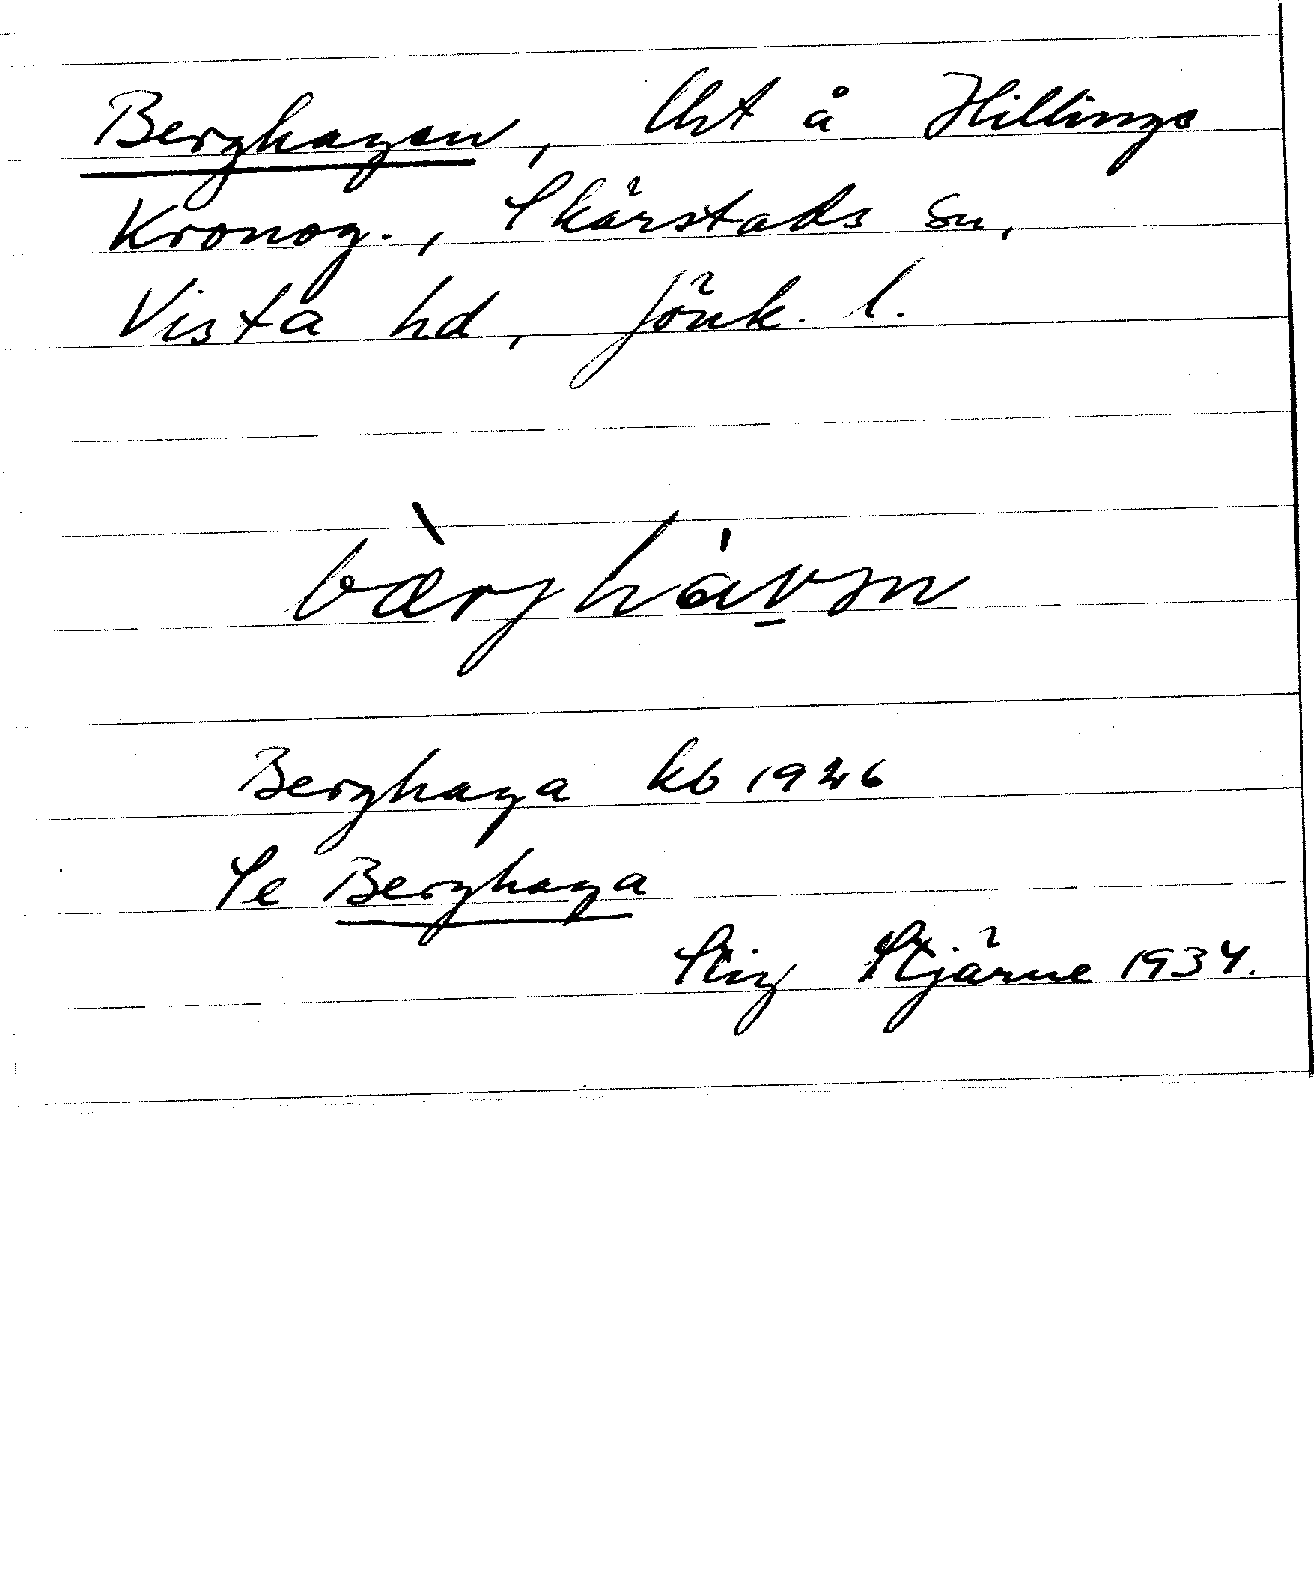 Berghagen, lht å Hillinge
Kronog., Skärstads sn,
Vista hd, Jönk. l.
bærjhàvən
Berghaga kb 1926
Se Berghaga
Stig Stjärne 1934.